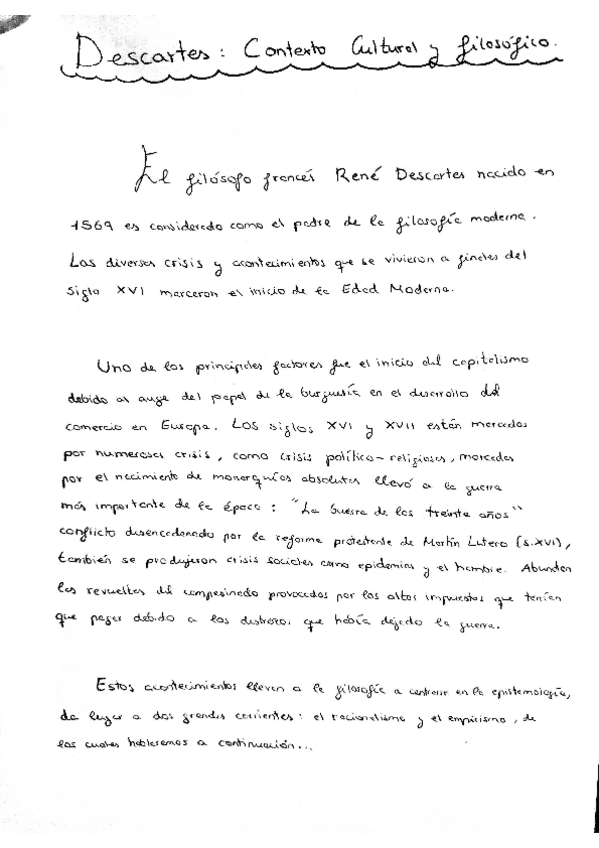 Descartes: Contexto Cultural y filosófico.
El filósofo francés René Descartes nacido en
1569 es considerado como el padre de la filosofía moderna.
Las diversas crisis y acontecimientos que se vivieron a finales del
siglo XVI marcaron el inicio de la Edad Moderna.
Uno de los principales factores fue el inicio del capitalismo
debido al auge del papel de la burguesía en el desarrollo del
comercio en Europa. Los siglos XVI y XVII están marcados
por numerosas crisis, como crisis político-religiosas, marcadas
por el nacimiento de monarquías absolutas llevó a la guerra
más importante de la época: "La Guerra de los treinta años"
conflicto desencadenado por la reforma protestante de Martín Lutero (s.XVI),
también se produjeron crisis sociales como epidemias y el hambre. Abundan
las revueltas del campesinado provocadas por los altos impuestos que tenían
que pagar debido a los destrozos que había dejado la guerra.
Estos acontecimientos llevan a la filosofía a centrarse en la epistemología,
da lugar a dos grandes corrientes: el racionalismo y el empirismo, de
las cuales hablaremos a continuación...